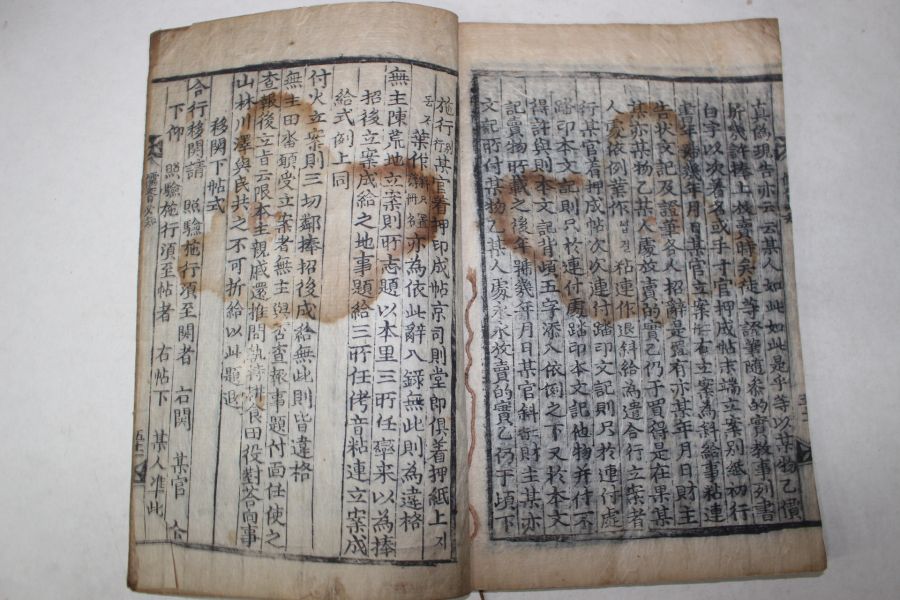 眞僞現告亦云云某人如此如此是乎等以某物乙價
所幾許捧上放賣時矣徒等證筆隨參的實敎事列書
白字以次着名或手寸官押成帖末端立案別紙初行
書年號幾年月日某官立案右立案爲斜給事粘連
告狀文記及證筆各人招辭是置有亦某年月日財主
某亦某物乙某人處放賣的實乙仍于買得是在果某
人處依例葉作 粘連作退斜給爲遣合行立案者
行某官着押成帖次次連付踏印文記則只於連付處
踏印本文記則只於連付處踏印本文記他物幷付不
得許與則本文記背頉五字添入依例之下又於本文
記賣物所載之後年號幾年月日某官斜所財主某亦
文記所付某物乙某人處永永放賣的實乙仍于頉下
施行 某官着押印成帖京司則堂郞俱着押紙上지
葉作 亦爲依此辭入錄無此則爲違格
無主陳荒地立案則所志題以本里三所任率來以爲捧
招後立案成給之地事題給三所任侤音粘連立案成
給式例上同
付火立案則三切鄰捧招後成給無此則皆違格
無主田畓頉受立案者無主與否査報事題付面任使之
査報後立旨云限本主親戚還推間執持耕食田役對答向事
山林川澤與民共之不可折給以此題退
移關下帖式
合行移關請 照驗施行須至關者 右關 某官 合
下仰 照驗施行須至帖者 右帖下 某人准此